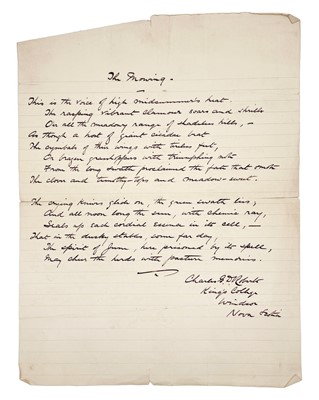 The Mowing.
This is the voice of high midsummer's heat.
The rasping vibrant clamour soars and shrills
O'er all the meadowy range of shadeless hills, –
As though a host of giant cicadae beat
The cymbals of their wings with tireless feet,
Or brazen grasshoppers with triumphing note
From the long swath proclaimed the fate that smote
The clover and timothy-tops and meadow-sweet.
The crying knives glide on; the green swath lies;
And all noon long the sun, with chemic ray,
Seals up each cordial essence in its cell, –
That in the dusky stalls, some far day,
The spirit of June, here prisoned by its spell,
May cheer the herds with pasture memories.
Charles G. D. Roberts
King's College
Windsor
Nova Scotia